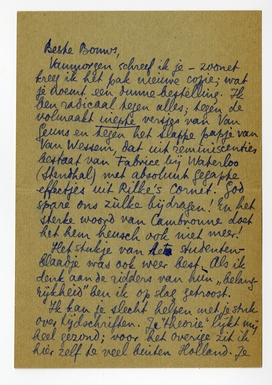 Beste Bouws,
Vanmorgen schreef ik je – zoonet
kreeg ik het pak nieuwe copie; wat
je noemt een dunne bestelling. Ik
ben radicaal tegen alles; tegen de
volmaakt inepte versjes van Van
Geuns en tegen het slappe papje van
Van Wessem, dat uit reminiscenties
bestaat van Fabrice bij Waterloo
(Stendhal) met absoluut gegapte
effectjes uit Rilke's Cornet. God
spare ons zulke bijdragen! En het
sterke woord van Cambronne doet
het hem heusch ook niet meer.
Het stukje van studenten-
blaadje was ook weer best. Als ik
denk aan de zijders van hun „belang-
rijkheid" ben ik op slag getroost.
Ik kan je slecht helpen met je stuk
over tijdschriften. Je „theorie" lijkt mij
heel gezond; voor het overige zit ik
hier zelf te veel buiten Holland. Je